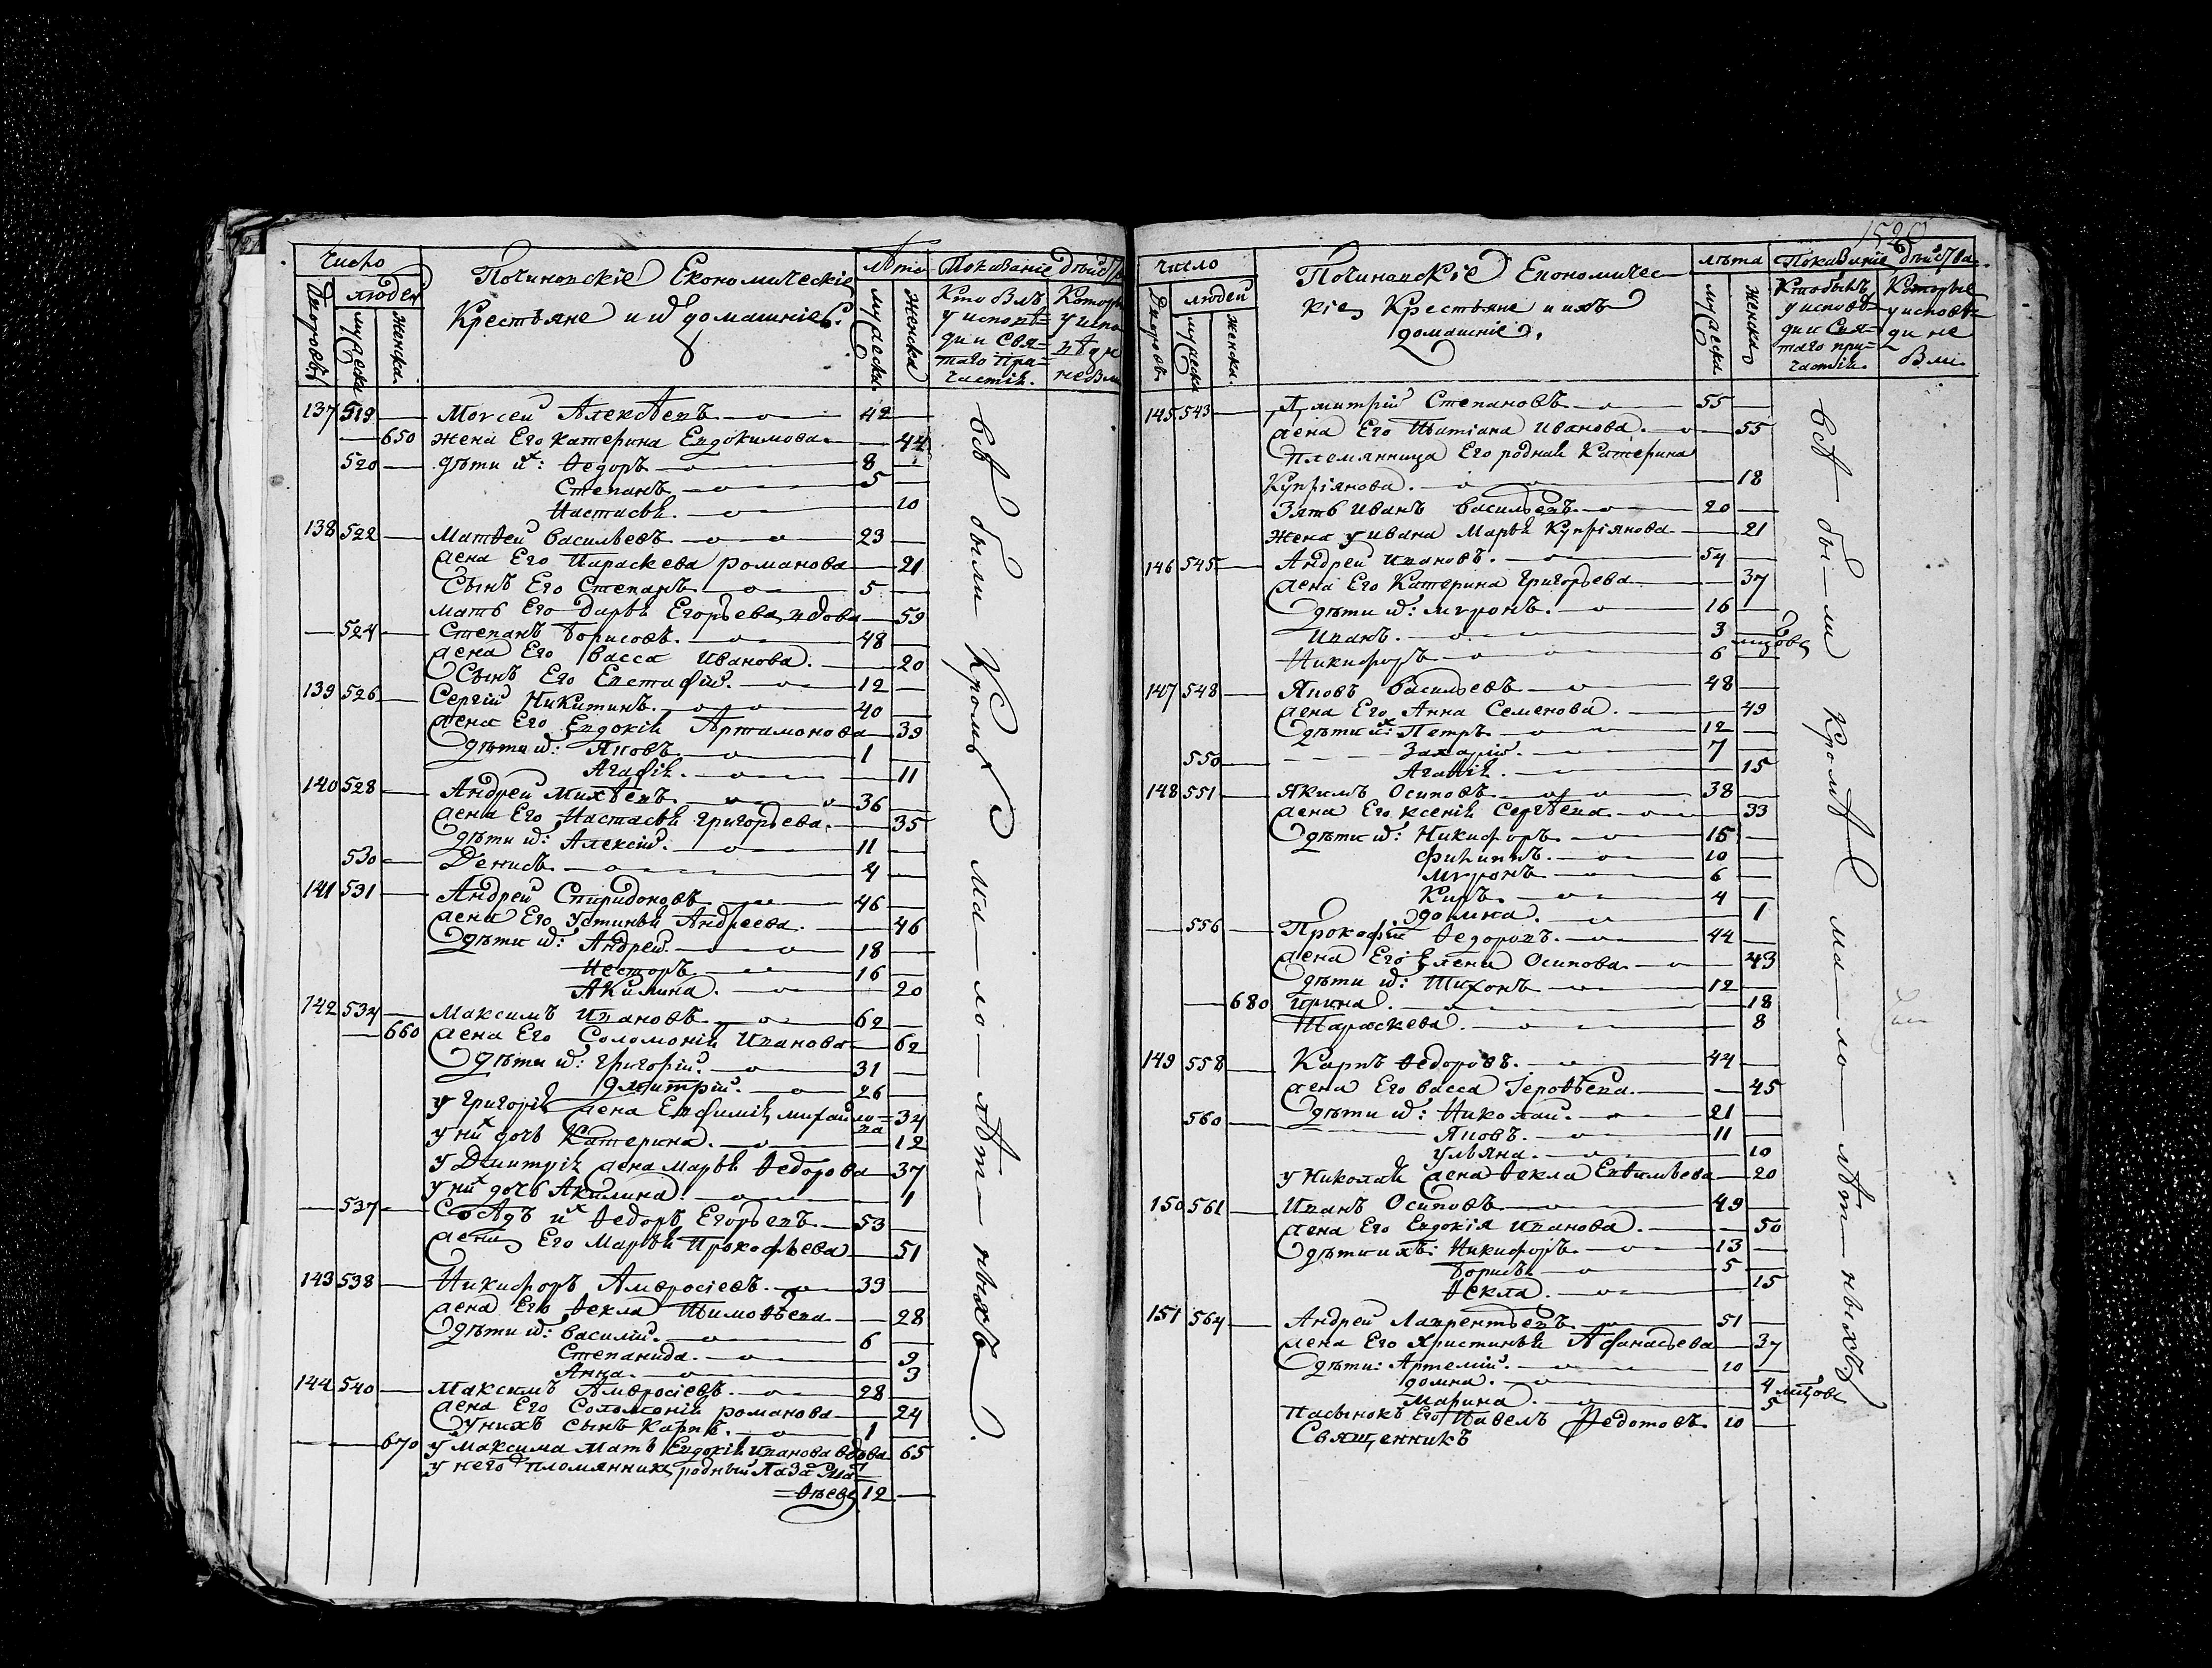 Число
людей
Дворовъ
мужеска
женска.
Починовскіе Економическіе
Крестьяне и их домашніе.
лѣта
мужеска
женска
Показаніе дѣйст
Кто былъ
у исповѣ=
ди и свя=
таго при=
частія.
Котор
у испо
вѣди
не бы
137 519 — Моѵсей Алексѣевъ 42 —
— 650 жена Его Катерина Евдокимова — 44
520 — дѣти их: Ѳедоръ 8 —
Степанъ 5 —
Настасья — 10
138 522 — Матвей Васильевъ 23 —
жена Его Параскева романова — 21
Сынъ Его Степанъ 5 —
мать Его дарья Егорьева вдова — 59
— 524 — Степанъ Борисовъ 48 —
жена Его Васса Иванова — 20
Сынъ Его Евстафій 12 —
139 526 — Сергій Никитинъ 40 —
жена Его Евдокія Артамонова — 39
дѣти их: Яковъ 1 —
Агафія — 11
140 528 — Андрей Михѣевъ 36 —
жена Его Настасья григорьева — 35
дѣти их: Алексій 11 —
530 — Денисъ 4 —
141 531 — Андрей Спиридоновъ 46 —
жена Его Устинья Андреева — 46
дѣти их: Андрей 18 —
Несторъ 16 —
Акилина — 20
142 534 — Максимъ Ивановъ 62 —
— 660 жена Его Соломонія Иванова — 62
дѣти их: григорій 31 —
дмитрій 26 —
у григорія жена Евфимія михайло=ва — 34
у них дочь Катерина — 12
у Дмитрія жена марья Ѳедорова — 37
у них дочь Акилина — 1
— 537 — Сосѣдъ их Ѳедоръ Егорьевъ 53 —
жена Его Марья Прокофьева — 51
143 538 — Никифоръ Амвросіевъ 33 —
жена Его Ѳекла Тимоѳѣева — 28
дѣти их: василій 6 —
Степанида — 9
Анна — 3
144 540 — Максимъ Амвросіевъ 28 —
жена Его Соломонія романова — 24
У нихъ сынъ Карпъ 1 —
— — 670 у максима мать Евдокія Иванова вдова — 65
у него пломянникъ родный Лаза Мат
=ѳѣевъ 12 —
всѣ были Кромѣ ма—ло—лѣт—ныхъ.
1520
число
людей
Дворовъ
мужеска
женска.
Починовскіе Економичес
кіе Крестьяне и ихъ
домашніе.
лѣта
мужеска
женска
Показаніе дѣйства.
Кто былъ
у исповѣ=
ди и Свя=
таго при=
частія.
Которые
у исповѣ=
ди не
были.
145 543 — Дмитрій Степановъ 55 —
жена Его Татіана Иванова — 55
Племянница Его родная Катерина
Купріянова — 18
Зять Иванъ Васильевъ 20 —
жена у ивана Марья Купріянова — 21
146 545 — Андрей Ивановъ 54 —
жена Его Катерина Григорьева — 37
дѣти их: мѵронъ 16 —
Иванъ 3 —
Никифоръ 6 —
147 548 — Яковъ Васильевъ 48 —
жена Его Анна Семенова — 49
дѣти их: Петръ 12 —
550 — Захарій 7 —
Агафія — 15
148 551 — Якимъ Осиповъ 38 —
жена Его ксенія Сергѣева — 33
дѣти их: Никифоръ 15 —
филиппъ 10 —
мѵронъ 6 —
Киръ 4 —
домна — 1
— 556 — Прокофій Ѳедоровъ 44 —
жена Его Елена Осипова — 43
дѣти их: Тихонъ 12 —
— 680 ирина — 18
Параскева — 8
149 558 — Карпъ Ѳедоровъ 44 —
жена Его васса Іеровѣева — 45
560 — дѣти их: Николай 21 —
Яковъ 11 —
ульяна — 10
у Николая жена Ѳекла Евтильева — 20
150 561 — Иванъ Осиповъ 49 —
жена Его Евдокія Иванова — 50
дѣти ихъ: Никифоръ 13 —
Борисъ 5 —
Ѳекла — 15
151 564 — Андрей Лаврентьевъ 51 —
жена Его Христинья Афанасьева — 37
дѣти: Артемій 10 —
домна — 4
Марина — 5
Пасынокъ Его Павелъ Ѳедотовъ 10 —
Священникъ
всѣ бы—ли Кромѣ ма—ло—лѣт—ныхъ